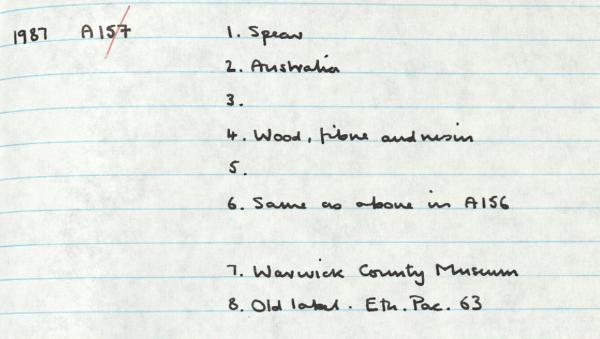 1987 A157 1. Spear
2. Australia
3.
4. Wood, fibre and resin
5.
6. Same as above in A156
7. Warwick County Museum
8. Old label. Eth. Pac. 63